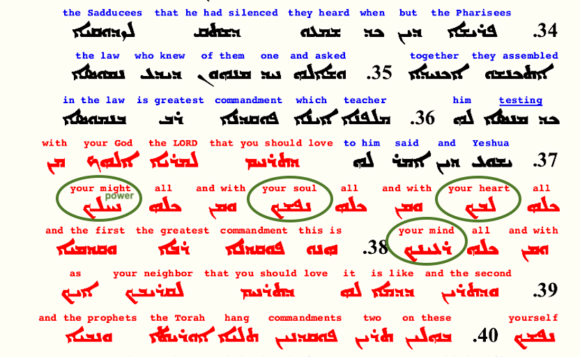 the Sadducees that he had silenced they heard when but the Pharisees
34. ܦܪܝܫܐ ܕܝܢ ܟܕ ܫܡܥܘ ܕܫܬܩ ܠܙܕܘܩܝܐ
the law who knew of them one and asked together they assembled
ܐܬܟܢܫܘ ܐܟܚܕܐ 35. ܘܫܐܠܗ ܚܕ ܡܢܗܘܢ ܕܝܕܥ ܢܡܘܣܐ
in the law is greatest commandment which teacher him testing
ܟܕ ܡܢܣܐ ܠܗ 36. ܡܠܦܢܐ ܐܝܢܐ ܦܘܩܕܢܐ ܪܒ ܒܢܡܘܣܐ
with your God the LORD that you should love to him said and Yeshua
37. ܝܫܘܥ ܕܝܢ ܐܡܪ ܠܗ ܕܬܪܚܡ ܠܡܪܝܐ ܐܠܗܟ ܡܢ
your might all and with your soul all and with your heart all
power
ܟܠܗ ܠܒܟ ܘܡܢ ܟܠܗ ܢܦܫܟ ܘܡܢ ܟܠܗ ܚܝܠܟ
and the first the greatest commandment this is your mind all and with
ܘܡܢ ܟܠܗ ܪܥܝܢܟ 38. ܗܢܘ ܦܘܩܕܢܐ ܪܒܐ ܘܩܕܡܝܐ
as your neighbor that you should love it is like and the second
39. ܘܕܬܪܝܢ ܕܕܡܐ ܠܗ ܕܬܪܚܡ ܠܩܪܝܒܟ ܐܝܟ
and the prophets the Torah hang commandments two on these yourself
ܢܦܫܟ 40. ܒܗܠܝܢ ܬܪܝܢ ܦܘܩܕܢܝܢ ܬܠܝܐ ܐܘܪܝܬܐ ܘܢܒܝܐ